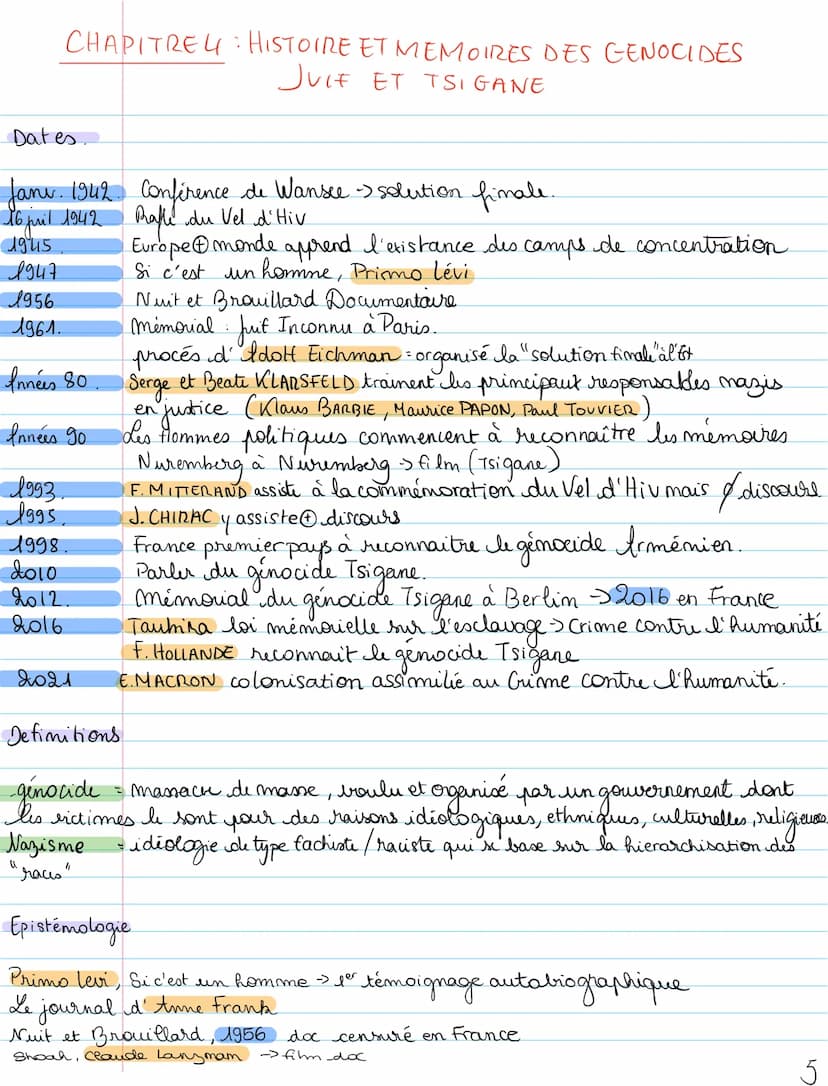 CHAPITRE 4 : HISTOIRE ET MEMOIRES DES GENOCIDES
JUIF ET TSIGANE
Dates.
Janv. 1942. Conférence de Wansee -> solution finale.
16 juil 1942 Rafle du Vel d'Hiv
1945. Europe ⊕ monde apprend l'existance des camps de concentration
1947 Si c'est un homme, Primo Lévi
1956 Nuit et Brouillard Documentaire
1961. Mémorial Juif Inconnu à Paris.
procés d'Adolf Eichman = organisé la "solution finale" à l'Est
Années 80. Serge et Beate KLARSFELD trainent les principaux responsables nazis
en justice (Klaus BARBIE, Maurice PAPON, Paul TOUVIER)
Années 90 Les Hommes politiques commencent à reconnaitre les mémoires
Nuremberg à Nuremberg -> film (Tsigane)
1993. F. MITTERAND assiste à la commémoration du Vel d'Hiv mais ∅ discours
1995. J. CHIRAC y assiste ⊕ discours
1998. France premier pays à reconnaitre le génocide Arménien.
2010 Parler du génocide Tsigane.
2012. Mémorial du génocide Tsigane à Berlin -> 2016 en France
2016 Taubira loi mémorielle sur l'esclavage -> Crime contre l'humanité
F. HOLLANDE reconnait le génocide Tsigane
2021 E. MACRON colonisation assimilié au Crime contre l'humanité.
Definitions
génocide = massacre de masse, voulu et organisé par un gouvernement dont
les victimes le sont pour des raisons idéologiques, ethniques, culturelles, religieuses.
Nazisme = idéologie de type fachiste / raciste qui se base sur la hierarchisation des
"races"
Epistémologie
Primo Levi, Si c'est un homme -> 1er témoignage autobiographique
Le journal d'Anne Frank
Nuit et Brouillard, 1956 doc censuré en France
Shoah, Claude Lanzmam -> film doc
5